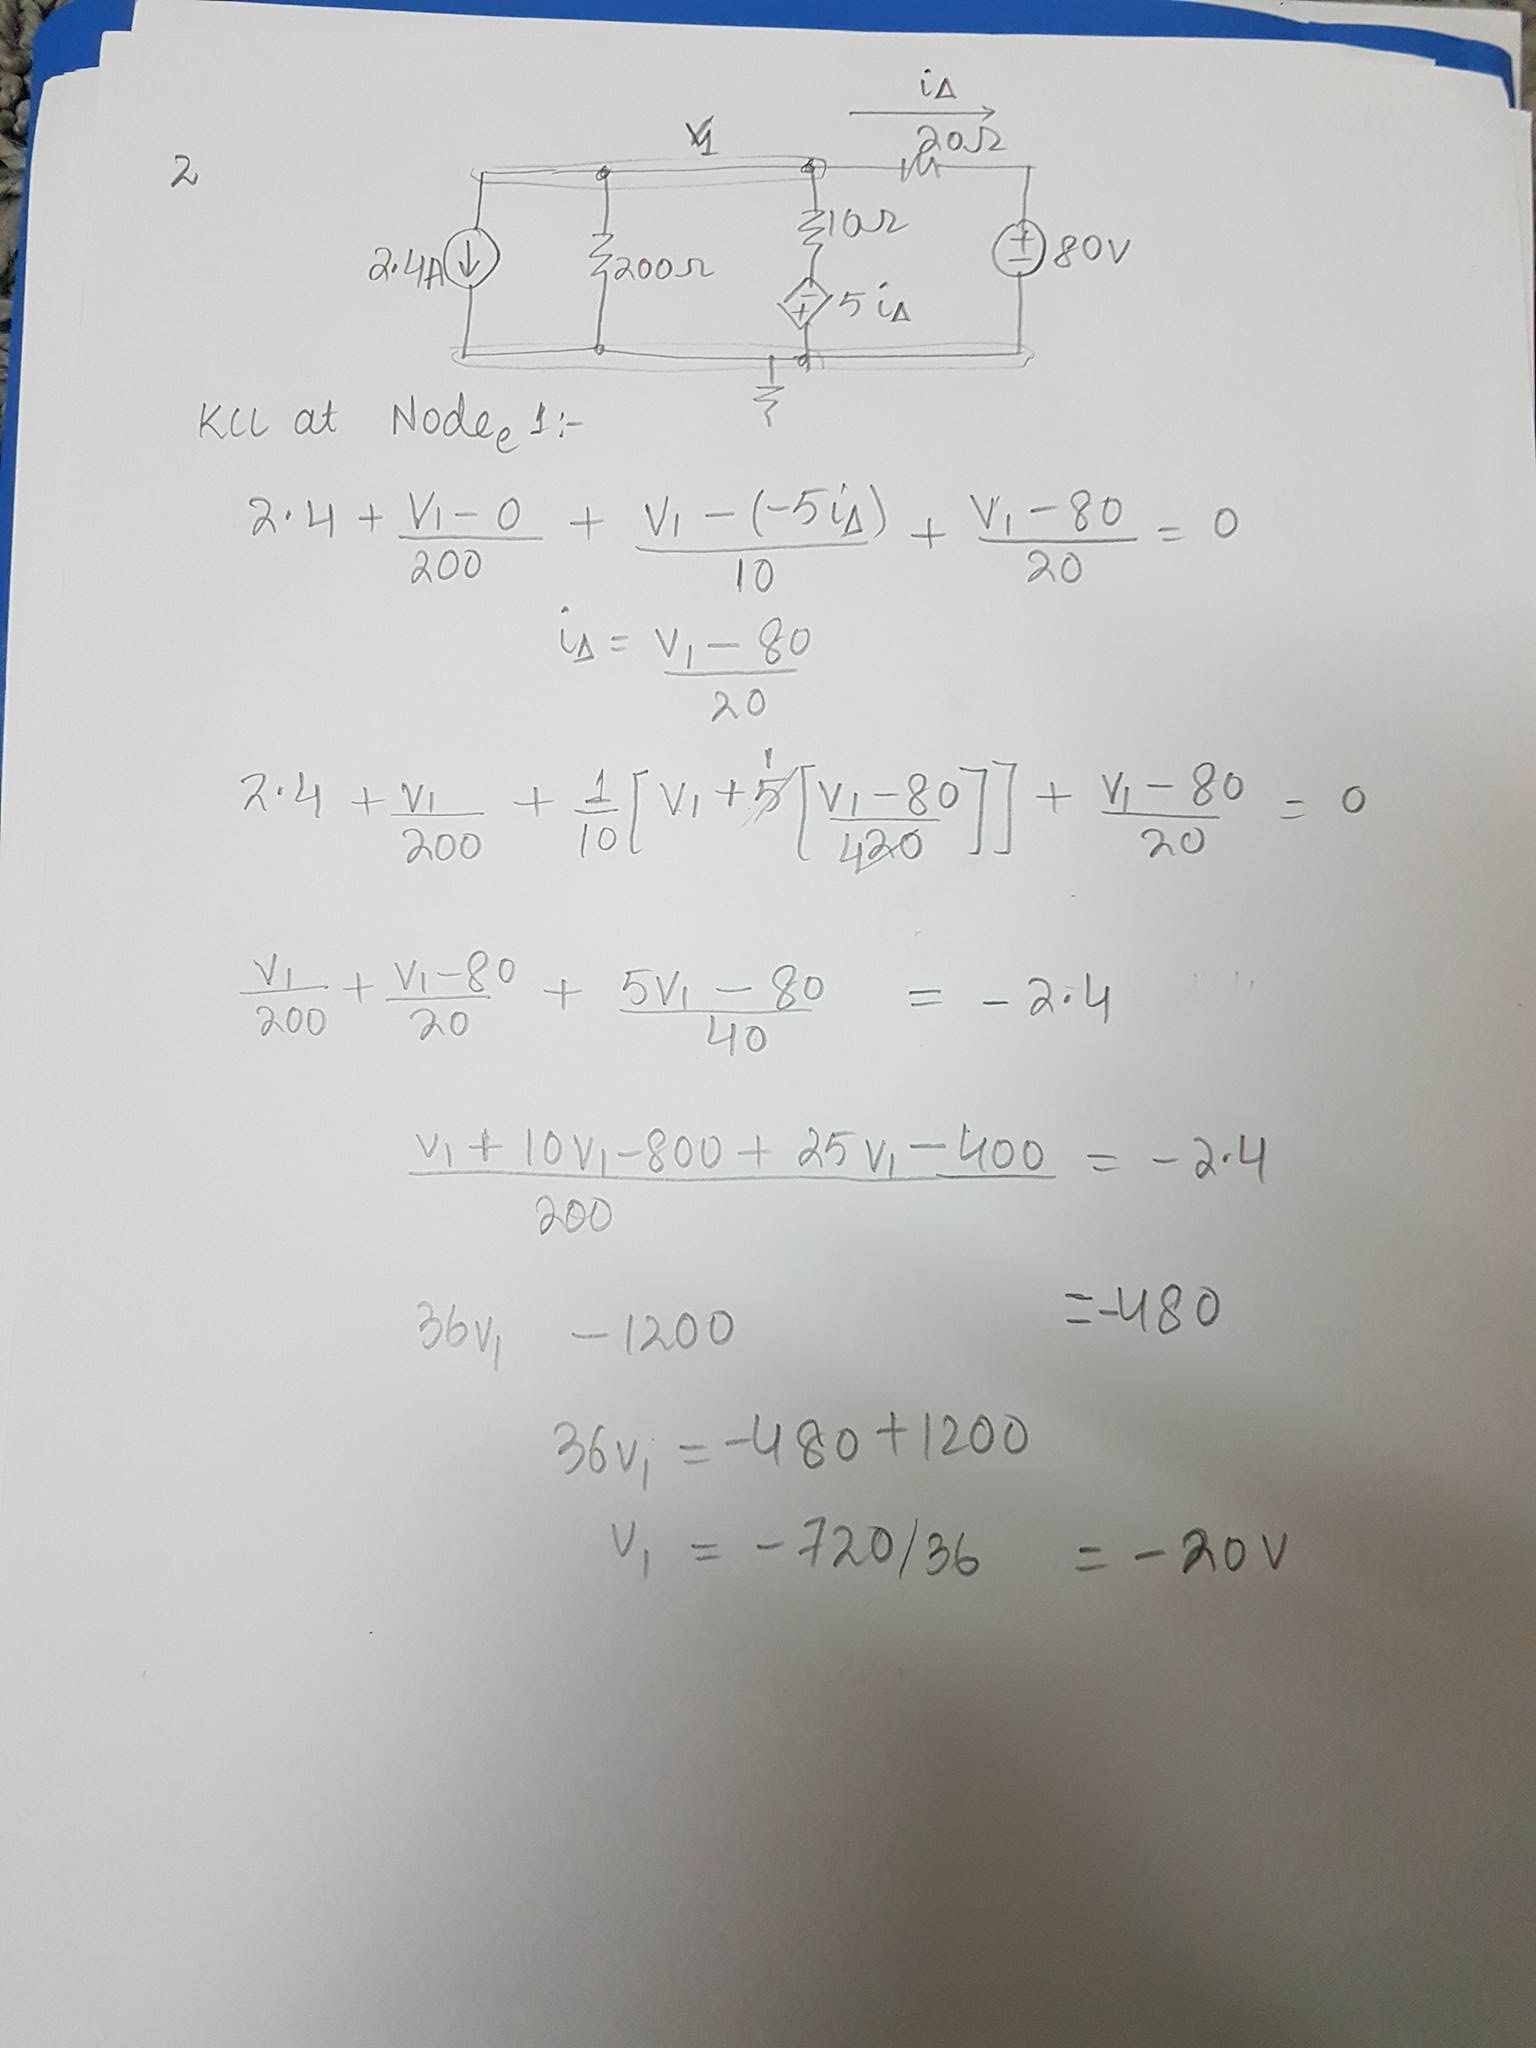 2
iΔ
V1
20Ω
2.4A
200Ω
10Ω
5iΔ
80V
KCL at Node 1:-
2.4 + (V1-0)/200 + (V1-(-5iΔ))/10 + (V1-80)/20 = 0
iΔ = (V1-80)/20
2.4 + V1/200 + 1/10[V1 + 5[(V1-80)/420]] + (V1-80)/20 = 0
V1/200 + (V1-80)/20 + (5V1-80)/40 = -2.4
(V1+10V1-800+25V1-400)/200 = -2.4
36V1 -1200 =-480
36V1 = -480+1200
V1 = -720/36 = -20V